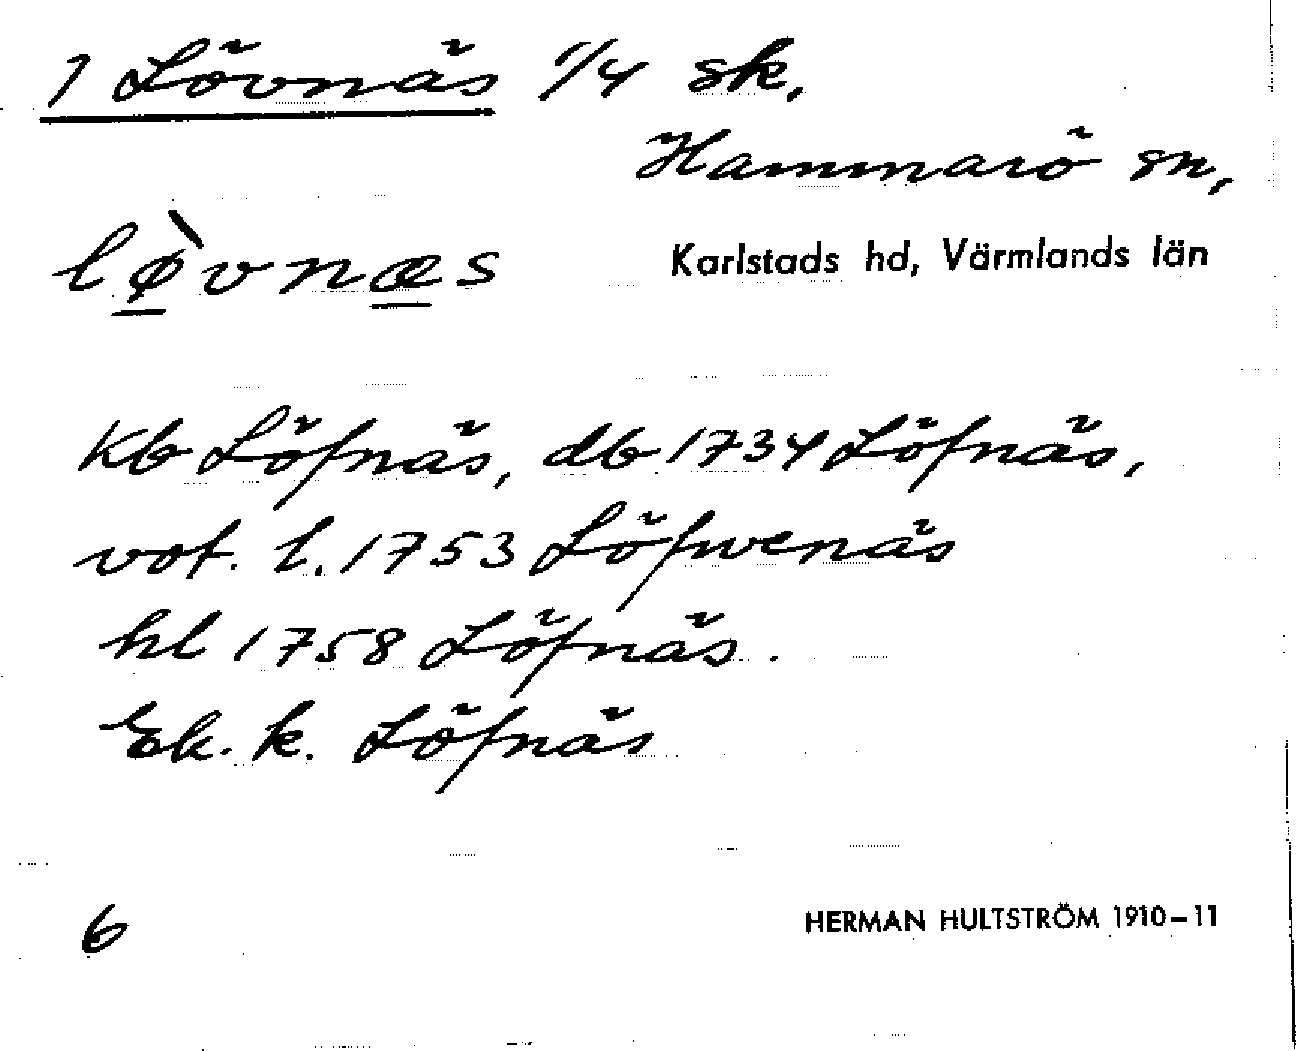 1 Lövnäs 1/4 sk,
Hammarö sn,
lø̠̀vnæ̠s
Karlstads hd, Värmlands län
Kb Löfnäs, db 1734 Löfnäs,
vot. l. 1753 Löfwenäs
hl 1758 Löfnäs.
Ek. k. Löfnäs
6
HERMAN HULTSTRÖM 1910–11